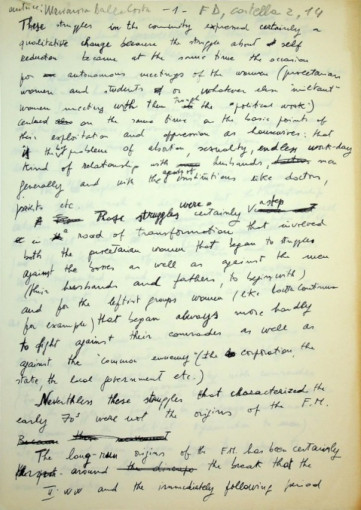 autrice: Mariarosa Dalla Costa - 1 - F D, cartella 2, 14
These struggles in the community expressed certainly a
qualitative change because the struggle about self
reduction became at the same time the occasion
for autonomous meetings of the women (proletarian
women and students or whatever else "militant"
women meeting with them through the "political work")
centered on the same time on the basic points of
their exploitation and oppression as housewives: that
is the problems of abortion, sexuality, endless work-day
kind of relationship with husbands, men
generally and with the institutions like doctors,
priests etc.
These struggles were certainly a step
in a road of transformation that involved
both the proletarian women that began to struggle
against the bosses as well as against the men
(their husbands and fathers, to begin with)
and for the leftist groups women (like Lotta Continua
for example) that began always more hardly
to fight against their comrades as well as
against the "common enemy" (the corporation, the
state, the local government etc.)
Nevertheless these struggles that characterized the
early 70s were not the origins of the F.M.
The long-run origins of the F.M. has been certainly
around the break that the
II WW and the immediately following period